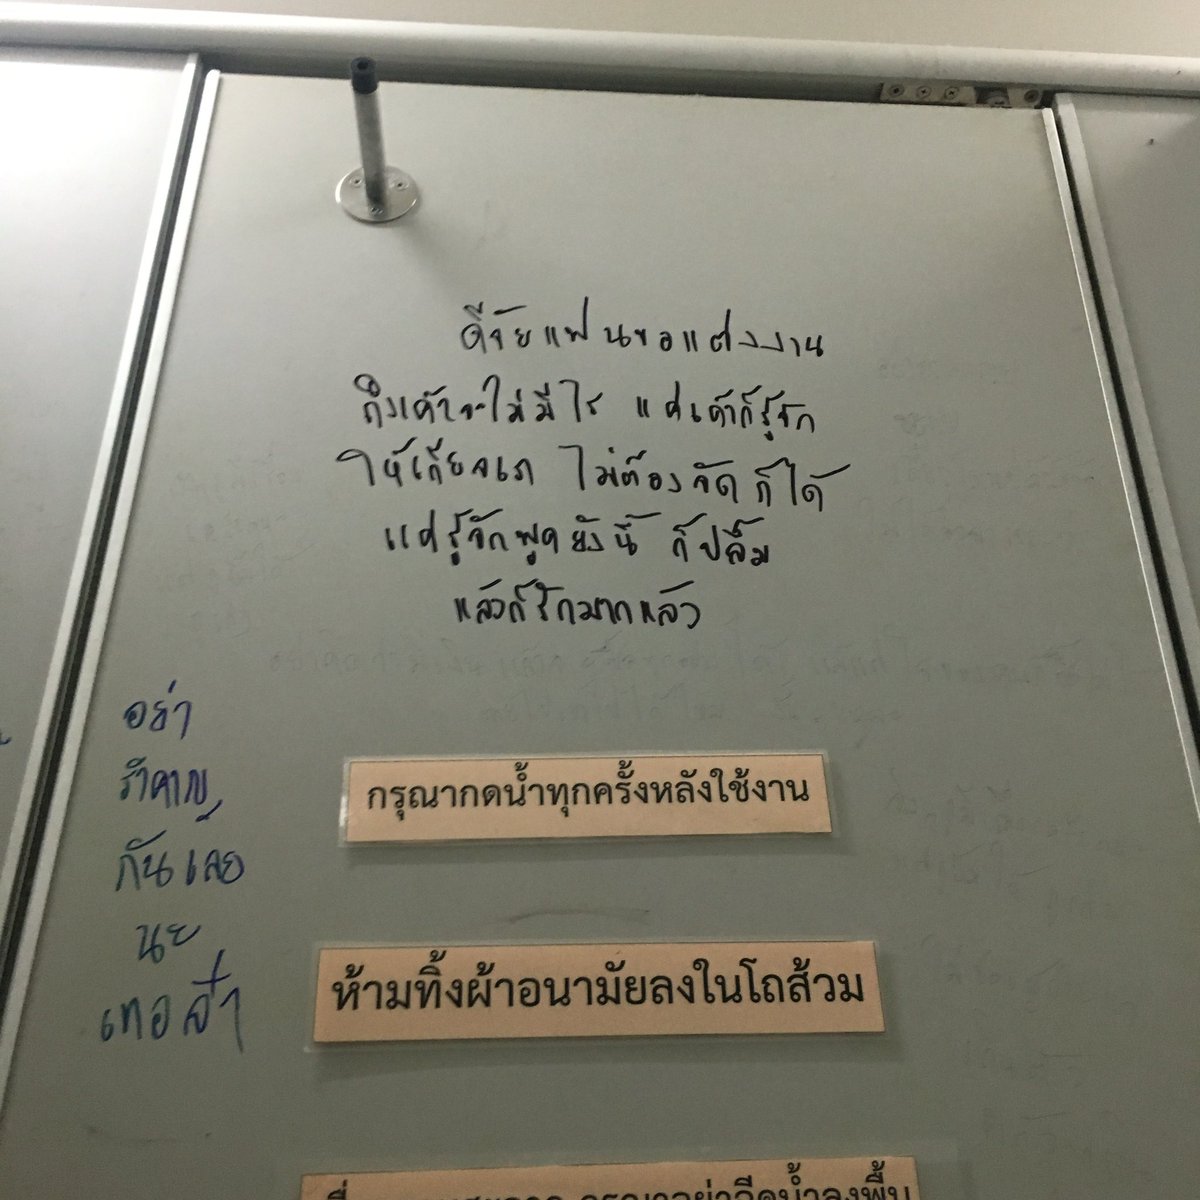 ดีจัยแฟนขอแต่งงาน
ถึงเค้าจะไม่มีไร แค่เค้าก็รู้จัก
ให้เกียจเรา ไม่ต้องจัดก็ได้
แค่รู้จักพูดยังนี้ ก็ปลื้ม
แล้วก็รักมากแล้ว
อย่า
รำคาญ
กันเลย
นะ
เทอจ๋า
กรุณากดน้ำทุกครั้งหลังใช้งาน
ห้ามทิ้งผ้าอนามัยลงในโถส้วม
กรุณาอย่าฉีดน้ำลงพื้น